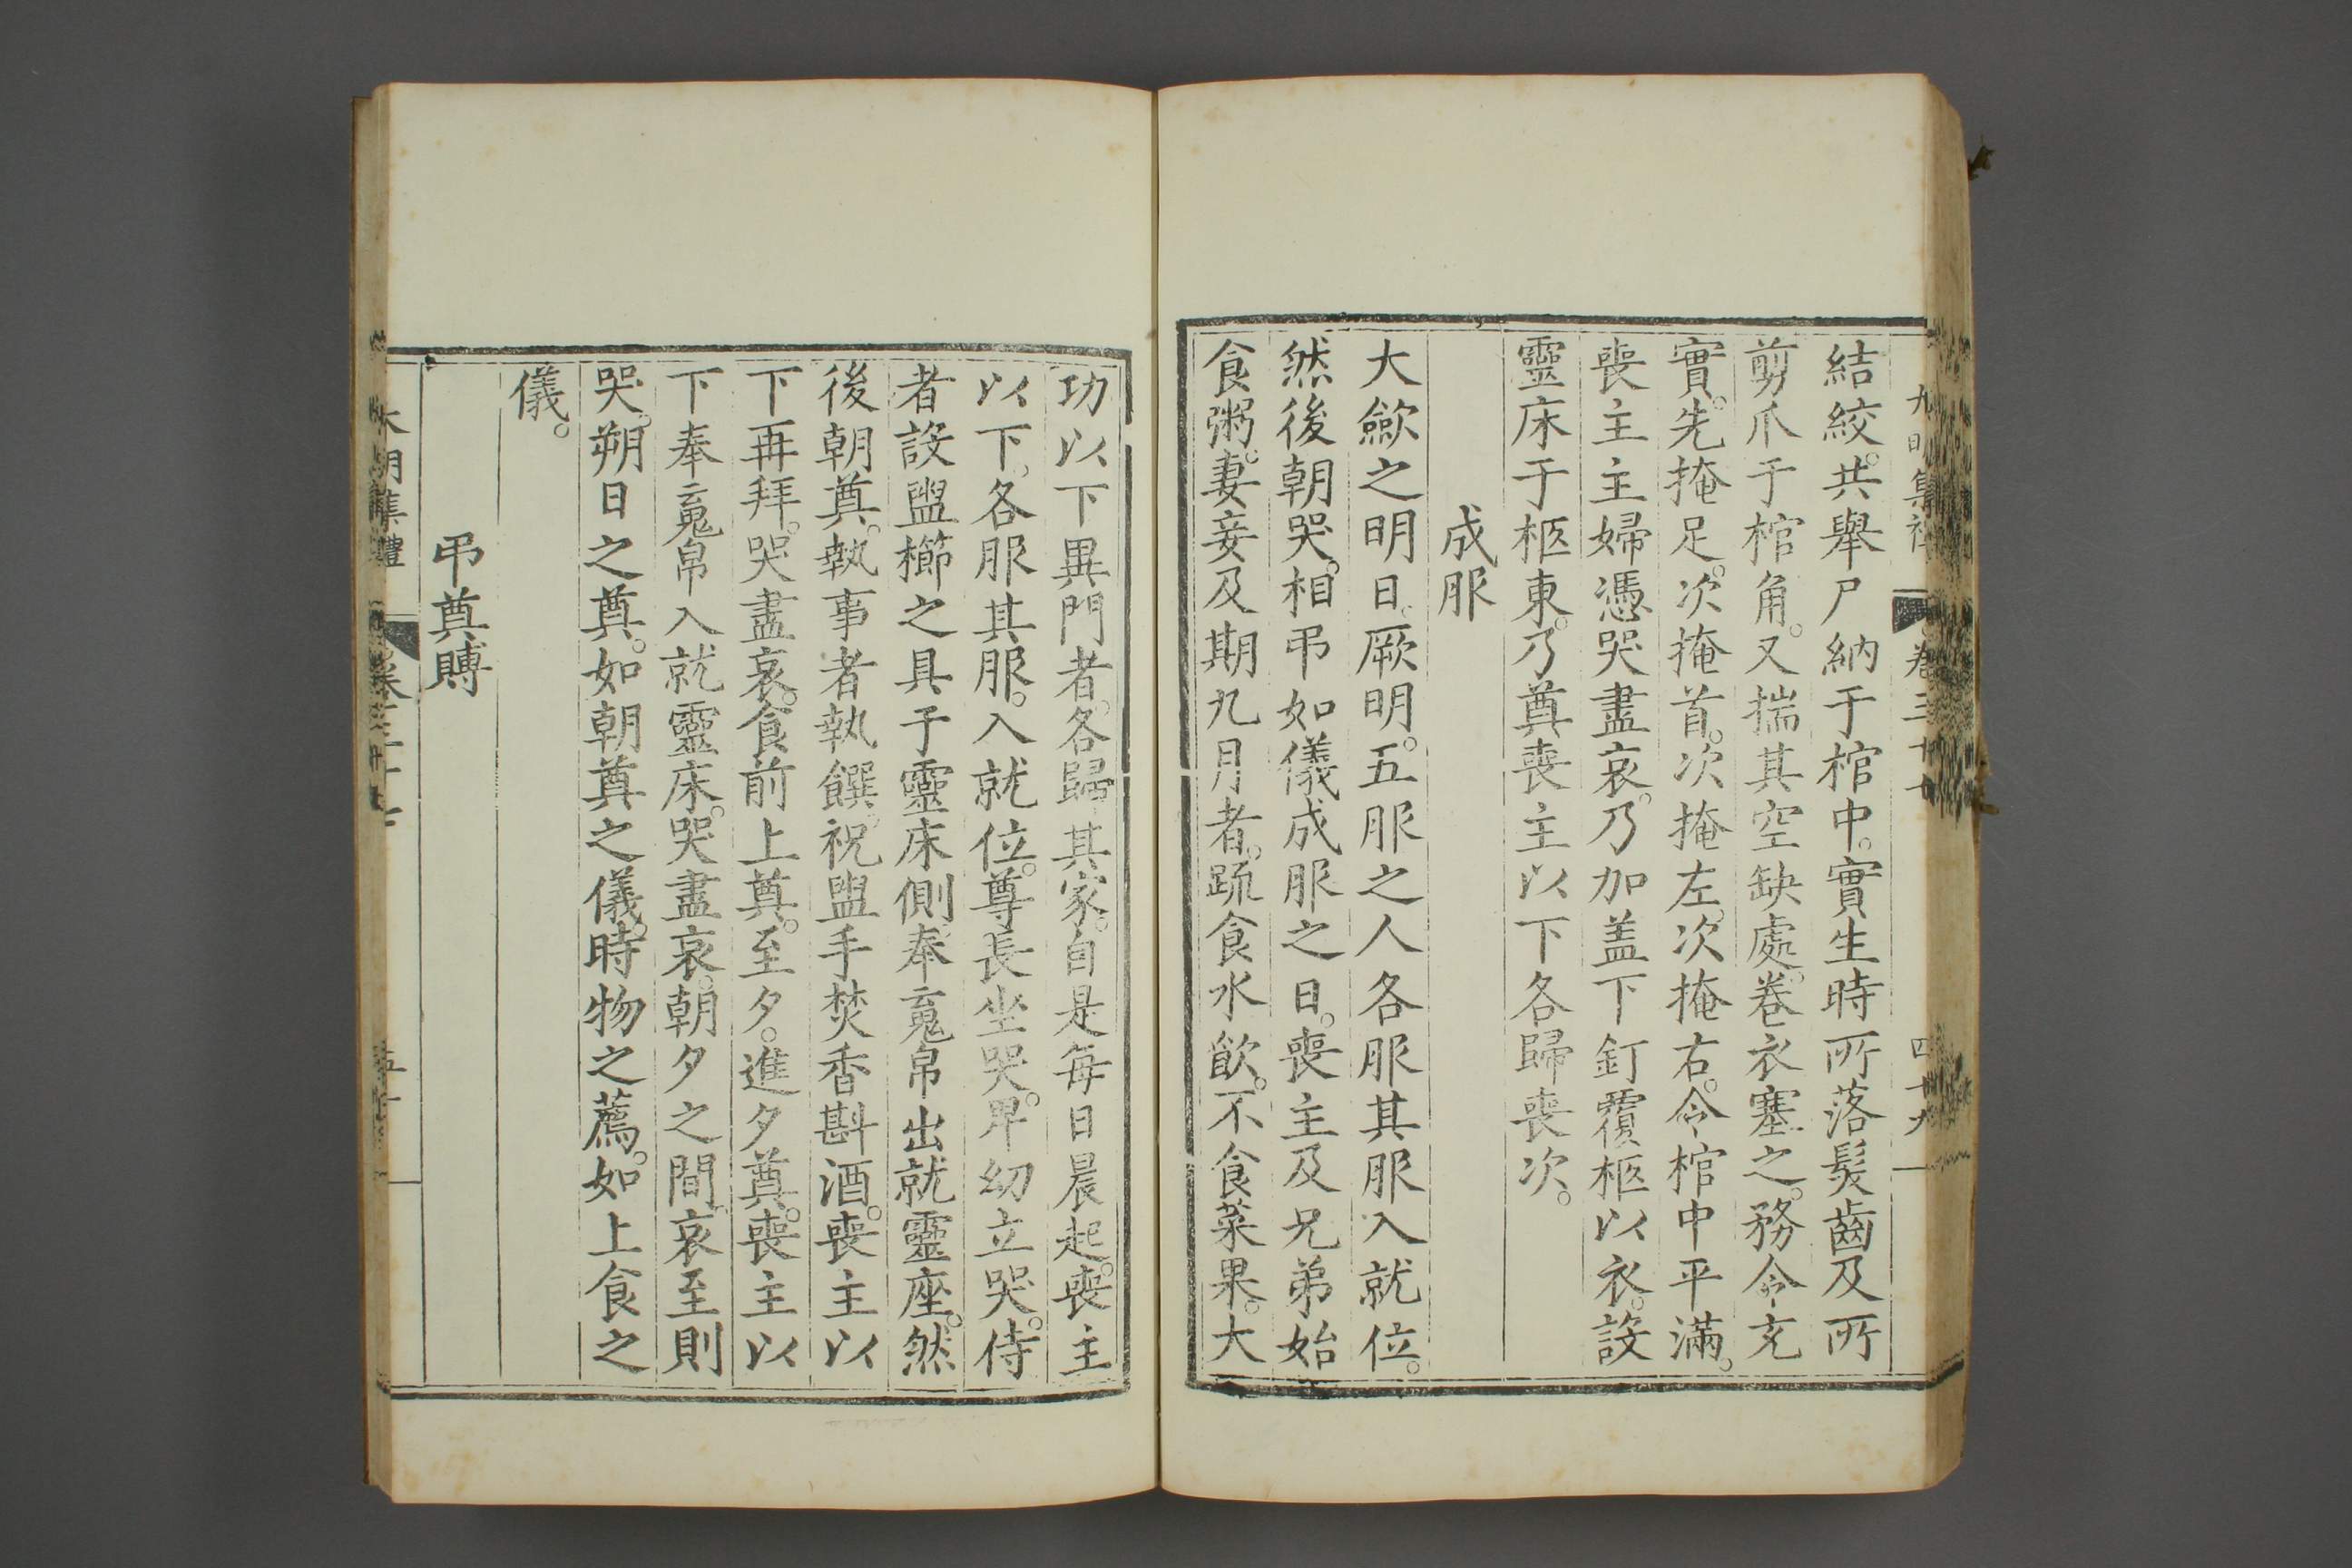 結絞。共舉尸納于棺中。實生時所落髮齒及所
剪爪于棺角。又揣其空缺處。卷衣塞之。務令充
實。先掩足。次掩首。次掩左。次掩右。令棺中平滿。
喪主主婦憑哭盡哀。乃加盖下釘覆柩以衣。設
靈床于柩東。乃奠喪主以下各歸喪次。
成服
大歛之明日。厥明。五服之人各服其服入就位。
然後朝哭。相弔如儀成服之日。喪主及兄弟始
食粥。妻妾及期九月者。疏食水飲。不食菜果。大
功以下異門者。各歸其家。自是每日晨起。喪主
以下。各服其服。入就位。尊長坐哭。卑幼立哭。侍
者設盥櫛之具于靈床側。奉䰟帛出就靈座。然
後朝奠。執事者執饌。祝盥手焚香斟酒。喪主以
下再拜。哭盡哀。食前上奠。至夕。進夕奠。喪主以
下奉䰟帛入就靈床。哭盡哀。朝夕之間。哀至則
哭。朔日之奠。如朝奠之儀。時物之薦。如上食之
儀。
弔奠賻
大明集禮
卷三十七